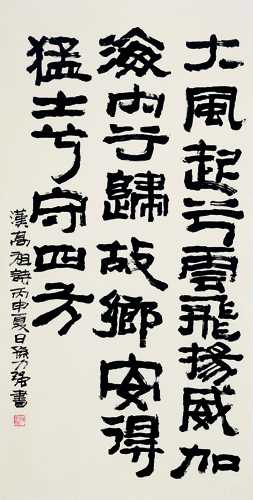 大風起兮雲飛揚威加
海内兮歸故鄉安得
猛士兮守四方
漢高祖詩丙申夏日孫力書